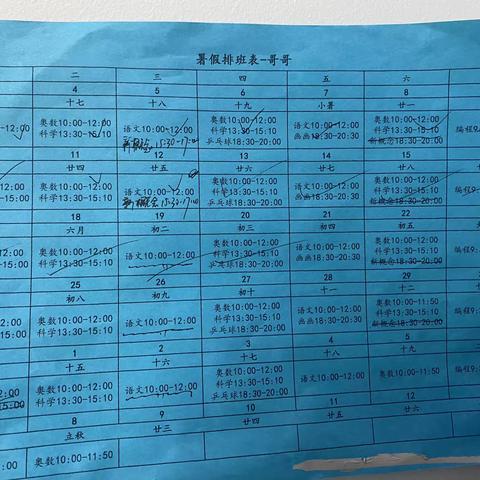 暑假排班表-哥哥
二 三 四 五 六
4 5 6 7 8
十七 十八 十九 小暑 廿一
-12:00 奥数10:00-12:00 语文10:00-12:00 奥数10:00-12:00 语文10:00-12:00 奥数10:00-12:00 编程9:
科学13:30-15:10 新概念15:30-17:00 科学13:30-15:10 画画18:30-20:00 科学13:30-15:10
乒乓球18:30-20:00 新概念18:30-20:00
11 12 13 14 15
廿四 廿五 廿六 廿七 廿八
12:00 奥数10:00-12:00 语文10:00-12:00 奥数10:00-12:00 语文10:00-12:00 奥数10:00-12:00 编程9:
-15:00 科学13:30-15:10 新概念15:30-17:00 科学13:30-15:10 画画18:30-20:00 科学13:30-15:10
乒乓球18:30-20:00 新概念18:30-20:00
18 19 20 21 22
六月 初二 初三 初四 初五
-12:00 奥数10:00-12:00 语文10:00-12:00 奥数10:00-12:00 语文10:00-12:00 奥数10:00-12:00 编程9:
-15:00 科学13:30-15:10 科学13:30-15:10 画画18:30-20:00 科学13:30-15:10
乒乓球18:30-20:00 新概念18:30-20:00
25 26 27 28 29
初八 初九 初十 十一 十二
-12:00 奥数10:00-12:00 语文10:00-12:00 奥数10:00-12:00 语文10:00-12:00 奥数10:00-11:50 编程9:
-15:00 科学13:30-15:10 科学13:30-15:10 画画18:30-20:00 科学13:30-15:10
乒乓球18:30-20:00 新概念18:30-20:00
1 2 3 4 5
十五 十六 十七 十八 十九
-12:00 奥数10:00-12:00 语文10:00-12:00 奥数10:00-12:00 语文10:00-12:00 奥数10:00-11:50 编程9:
-15:00 科学13:30-15:10 科学13:30-15:10
乒乓球18:30-20:00
8 9 10 11 12
立秋 廿三 廿四 廿五 廿六
:00 奥数10:00-11:50